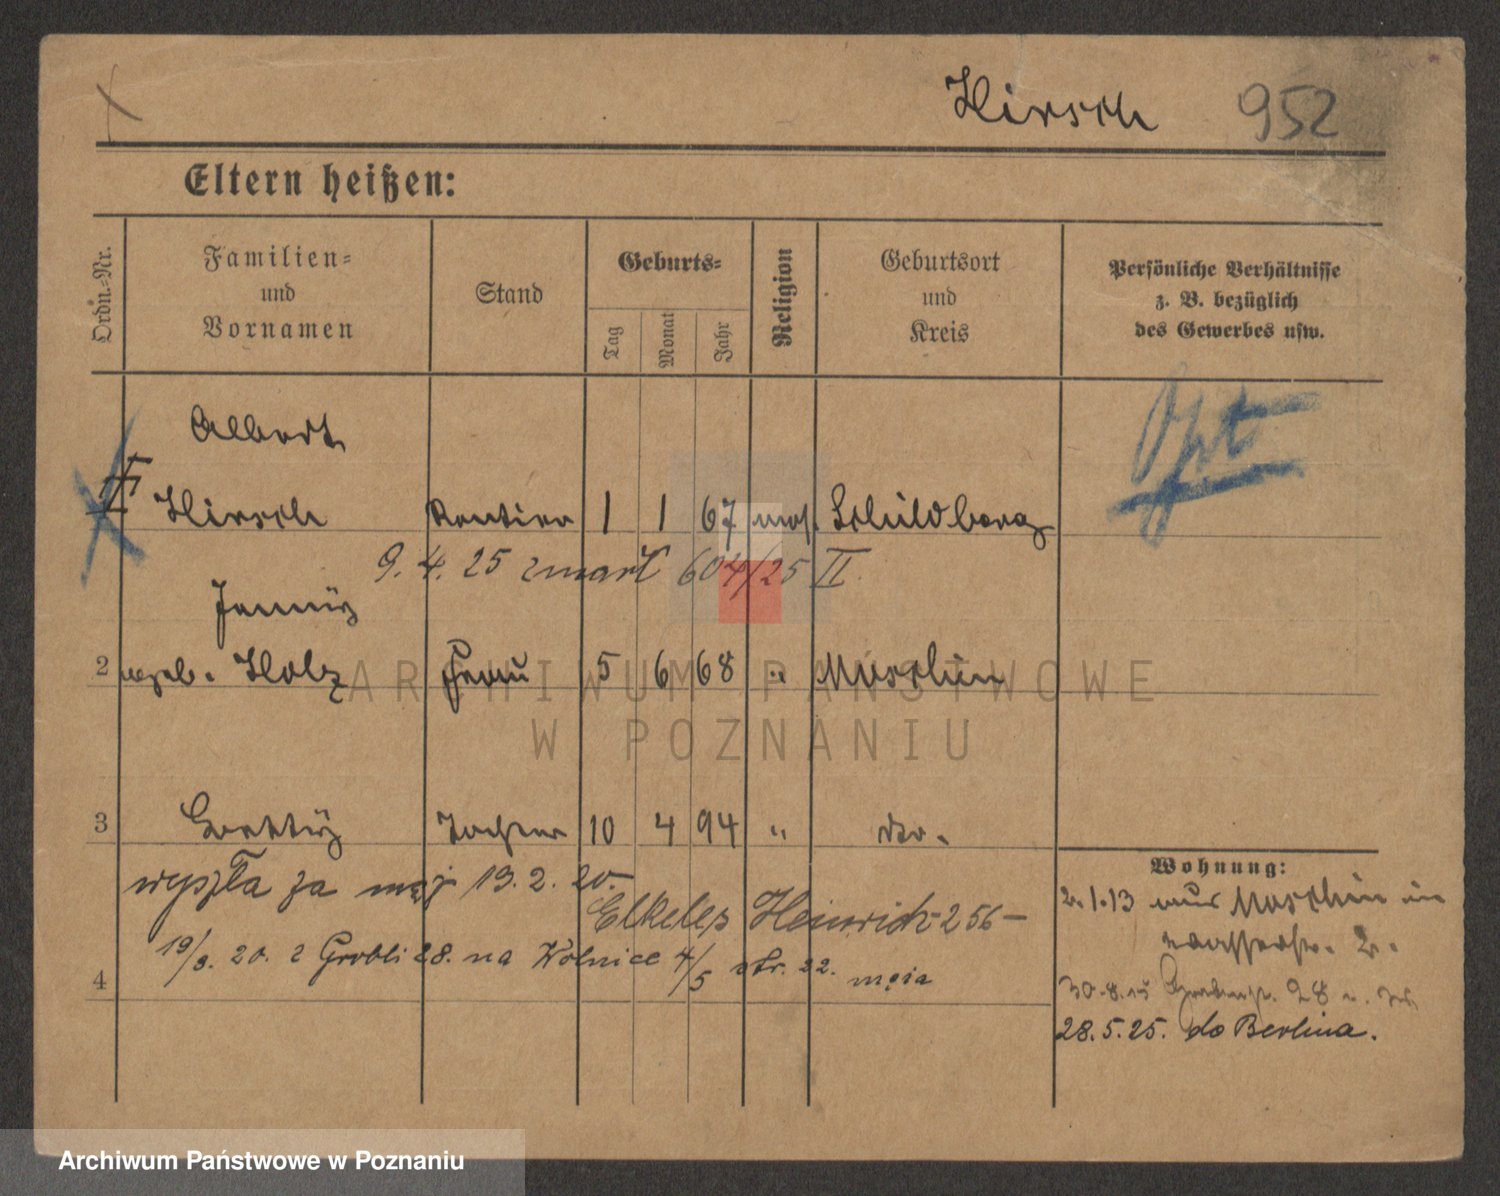 Hirsch 952
Eltern heißen:
Ordn.-Nr.
Familien-
und
Vornamen
Stand
Geburts-
Tag
Monat
Jahr
Religion
Geburtsort
und
Kreis
Persönliche Verhältnisse
z. B. bezüglich
des Gewerbes usw.
Opt
Albert
Hirsch Rentier 1 1 67 mos. Schildberg
9. 4. 25 zmarł 604/25 II
Jenny
2 geb. Holz Frau 5 6 68 " Moschin
3 Tochter 10 4 94 " do.
wyszła za mąż 19. 2. 20.
Elkeles Heinrich 256 —
19/3. 20. z Grobli 28. na Wolnice 4/5 str. 22. męża
4
Wohnung:
2.1.13 aus Moschin
2.
30.8.15 Grabenstr. 28
28.5.25. do Berlina.
ARCHIWUM PAŃSTWOWE
W POZNANIU
Archiwum Państwowe w Poznaniu